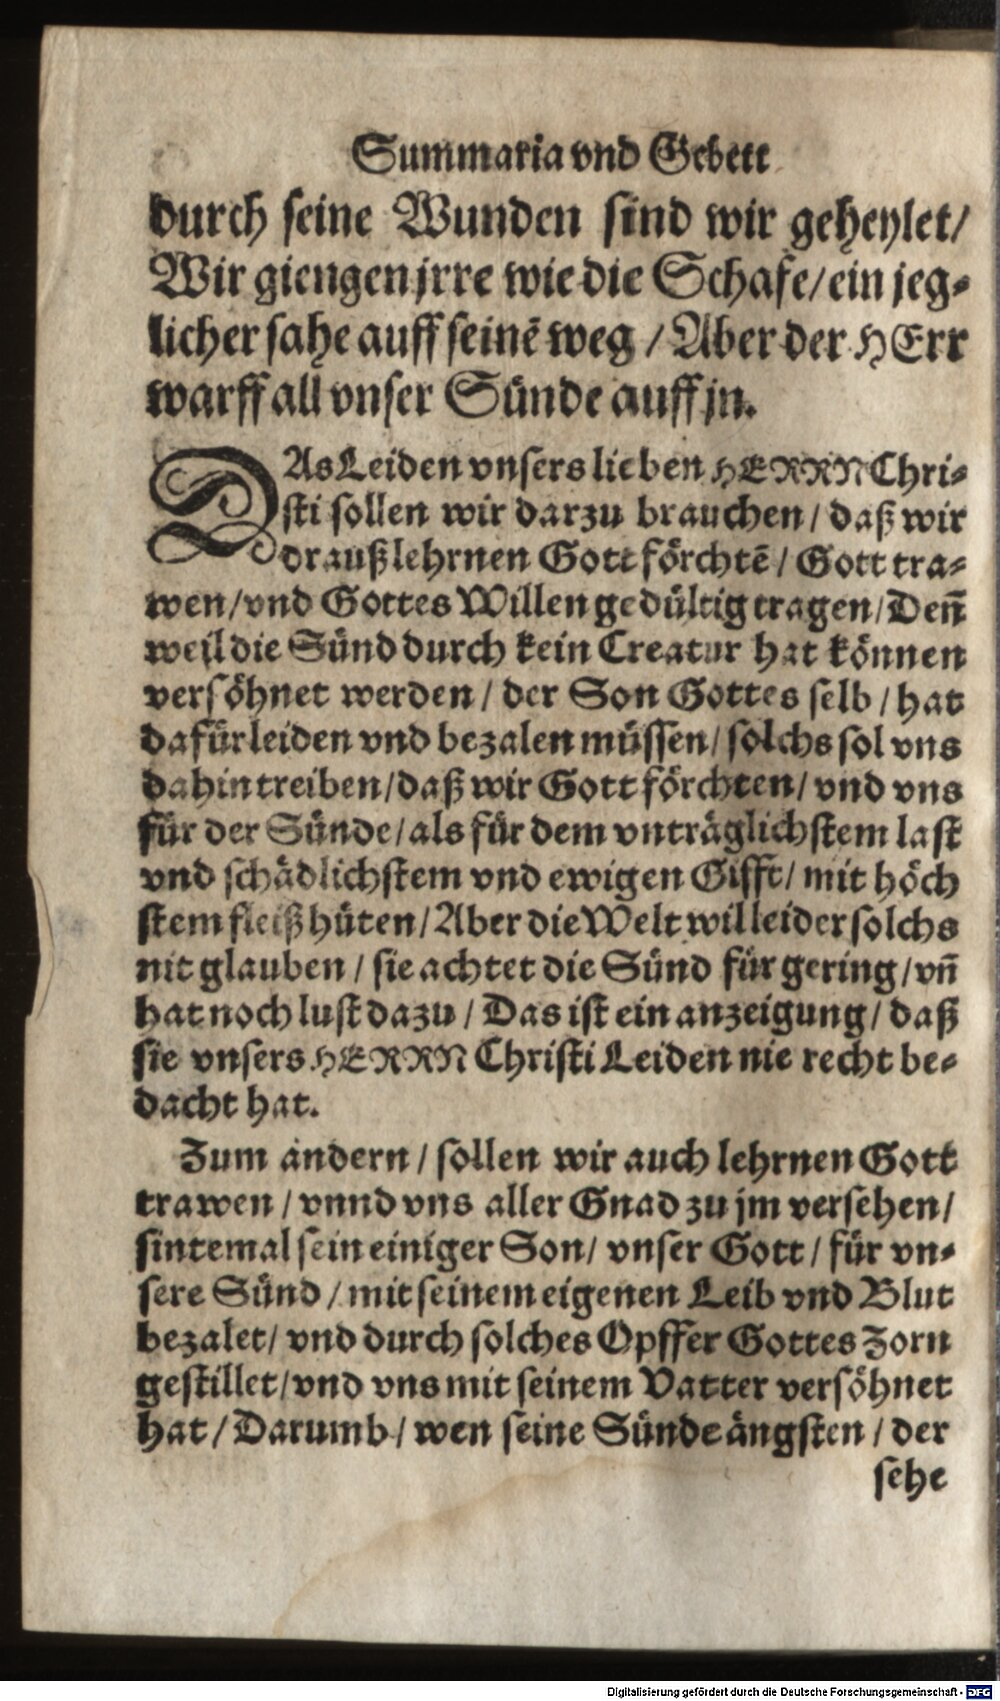 Summaria vnd Gebett
durch seine Wunden sind wir geheylet/
Wir giengen jrre wie die Schafe/ ein jeg-
licher sahe auff seinē weg / Aber der HErr
warff all vnser Sünde auff jn.
DAs Leiden vnsers lieben HERRN Chri-
sti sollen wir darzu brauchen / daß wir
drauß lehrnen Gott förchtē / Gott tra-
wen/ vnd Gottes Willen gedültig tragen/ Deñ
weil die Sünd durch kein Creatur hat können
versöhnet werden / der Son Gottes selb / hat
dafür leiden vnd bezalen müssen/ solchs sol vns
dahin treiben/ daß wir Gott förchten/ vnd vns
für der Sünde/ als für dem vnträglichstem last
vnd schädlichstem vnd ewigen Gifft/ mit höch
stem fleiß hüten/ Aber die Welt wil leider solchs
nit glauben / sie achtet die Sünd für gering/ vñ
hat noch lust dazu / Das ist ein anzeigung/ daß
sie vnsers HERRN Christi Leiden nie recht be-
dacht hat.
Zum andern / sollen wir auch lehrnen Gott
trawen / vnnd vns aller Gnad zu jm versehen/
sintemal sein einiger Son/ vnser Gott / für vn-
sere Sünd / mit seinem eigenen Leib vnd Blut
bezalet/ vnd durch solches Opffer Gottes Zorn
gestillet/ vnd vns mit seinem Vatter versöhnet
hat / Darumb / wen seine Sünde ängsten / der
sehe
Digitalisierung gefördert durch die Deutsche Forschungsgemeinschaft - DFG